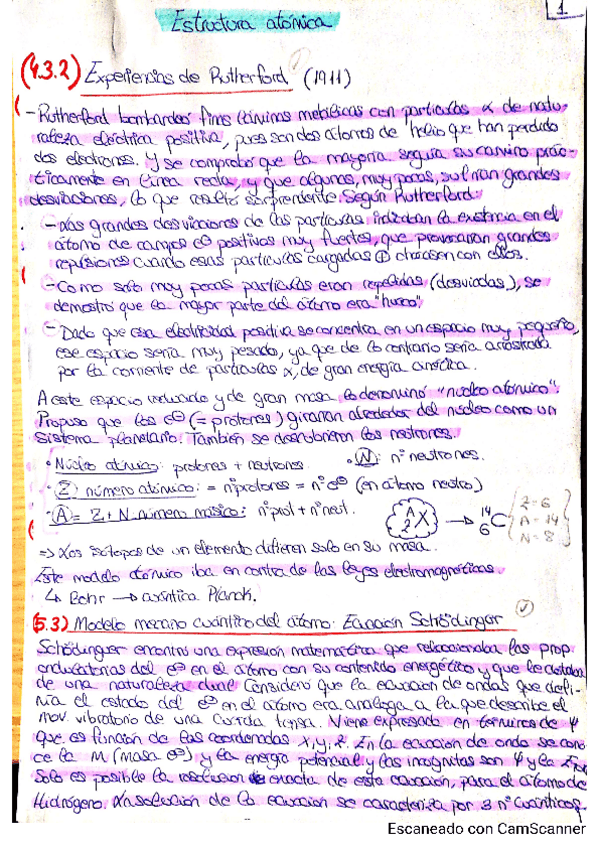 Estructura atómica
1
(4.3.2) Experiencias de Rutherford (1911)
- Rutherford bombardeó finas láminas metálicas con partículas α de natu-
raleza eléctrica positiva, pues son dos átomos de helio que han perdido
dos electrones. Y se comprobó que la mayoría seguía su camino prác-
ticamente en línea recta, y que algunas, muy pocas, sufrían grandes
desviaciones, lo que resultó sorprendente. Según Rutherford:
- Las grandes desviaciones de las partículas indicaban la existencia en el
átomo de campos e⊕ positivos muy fuertes, que provocaran grandes
repulsiones cuando esas partículas cargadas ⊕ chocasen con ellos.
- Como solo muy pocas partículas eran repelidas (desviadas), se
demostró que la mayor parte del átomo era "hueco"
- Dado que esa electricidad positiva se concentra en un espacio muy pequeño,
ese espacio sería muy pesado, ya que de lo contrario sería arrastrada
por la corriente de partículas α, de gran energía cinética.
A este espacio reducido y de gran masa lo denominó "núcleo atómico".
Propuso que los e⊖ (= protones) giraran alrededor del núcleo como un
sistema planetario. También se descubrieron los neutrones.
• Núcleo atómico: protones + neutrones. • (N): nº neutrones.
• (Z) número atómico: = nº protones = nº e⊖ (en átomo neutro)
• (A) = Z + N número másico: nº prot + nº neut.
A Z X → 14 6 C { Z = 6
A = 14
N = 8 }
⇒ Los isótopos de un elemento difieren solo en su masa.
Este modelo atómico iba en contra de las leyes electromagnéticas.
↳ Bohr → cuántica Planck.
(5.3) Modelo mecano cuántico del átomo: Ecuación Schödinger
Schödinguer encontró una expresión matemática que relacionaba las prop
ondulatorias del e⊖ en el átomo con su contenido energético y que le dotaba
de una naturaleza dual. Consideró que la ecuación de ondas que defi-
nía el estado del e⊖ en el átomo era análoga a la que describe el
mov. vibratorio de una cuerda tensa. Viene expresado en términos de Ψ
que es función de las coordenadas x, y, z. En la ecuación de onda se cono
ce la M (masa e⊖) y la energía potencial y las incógnitas son Ψ y la
Solo es posible la resolución exacta de esta ecuación, para el átomo de
Hidrógeno. La solución de la ecuación se caracteriza por 3 nº cuánticos
Escaneado con CamScanner